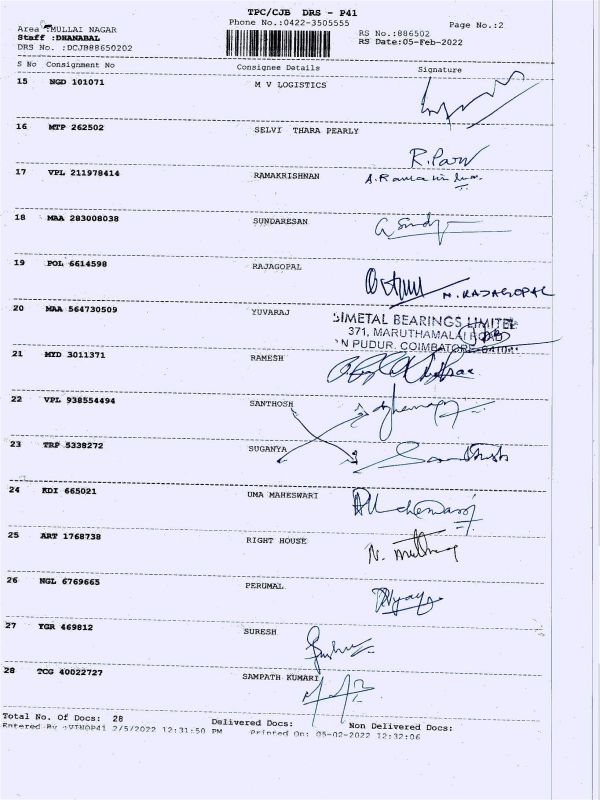 TPC/CJB DRS - P41
Phone No.:0422-3505555
Page No.:2
Area :MULLAI NAGAR
Staff :DHANABAL
DRS No. :DCJB88650202
RS No.:886502
RS Date:05-Feb-2022
S No Consignment No Consignee Details Signature
15 NGD 101071 M V LOGISTICS
16 MTP 262502 SELVI THARA PEARLY
17 VPL 211978414 RAMAKRISHNAN
18 MAA 283008038 SUNDARESAN
19 POL 6614598 RAJAGOPAL
N. RAJAGOPAL
20 MAA 564730509 YUVARAJ
BIMETAL BEARINGS LIMITED
371, MARUTHAMALAI ROAD
N PUDUR, COIMBATORE
21 MYD 3011371 RAMESH
22 VPL 938554494 SANTHOSH
23 TRP 5338272 SUGANYA
24 KDI 665021 UMA MAHESWARI
25 ART 1768738 RIGHT HOUSE
26 NGL 6769665 PERUMAL
27 YGR 469812 SURESH
28 TCG 40022727 SAMPATH KUMARI
Total No. Of Docs: 28 Delivered Docs: Non Delivered Docs:
Entered By :VINOP41 2/5/2022 12:31:50 PM Printed On: 05-02-2022 12:32:06